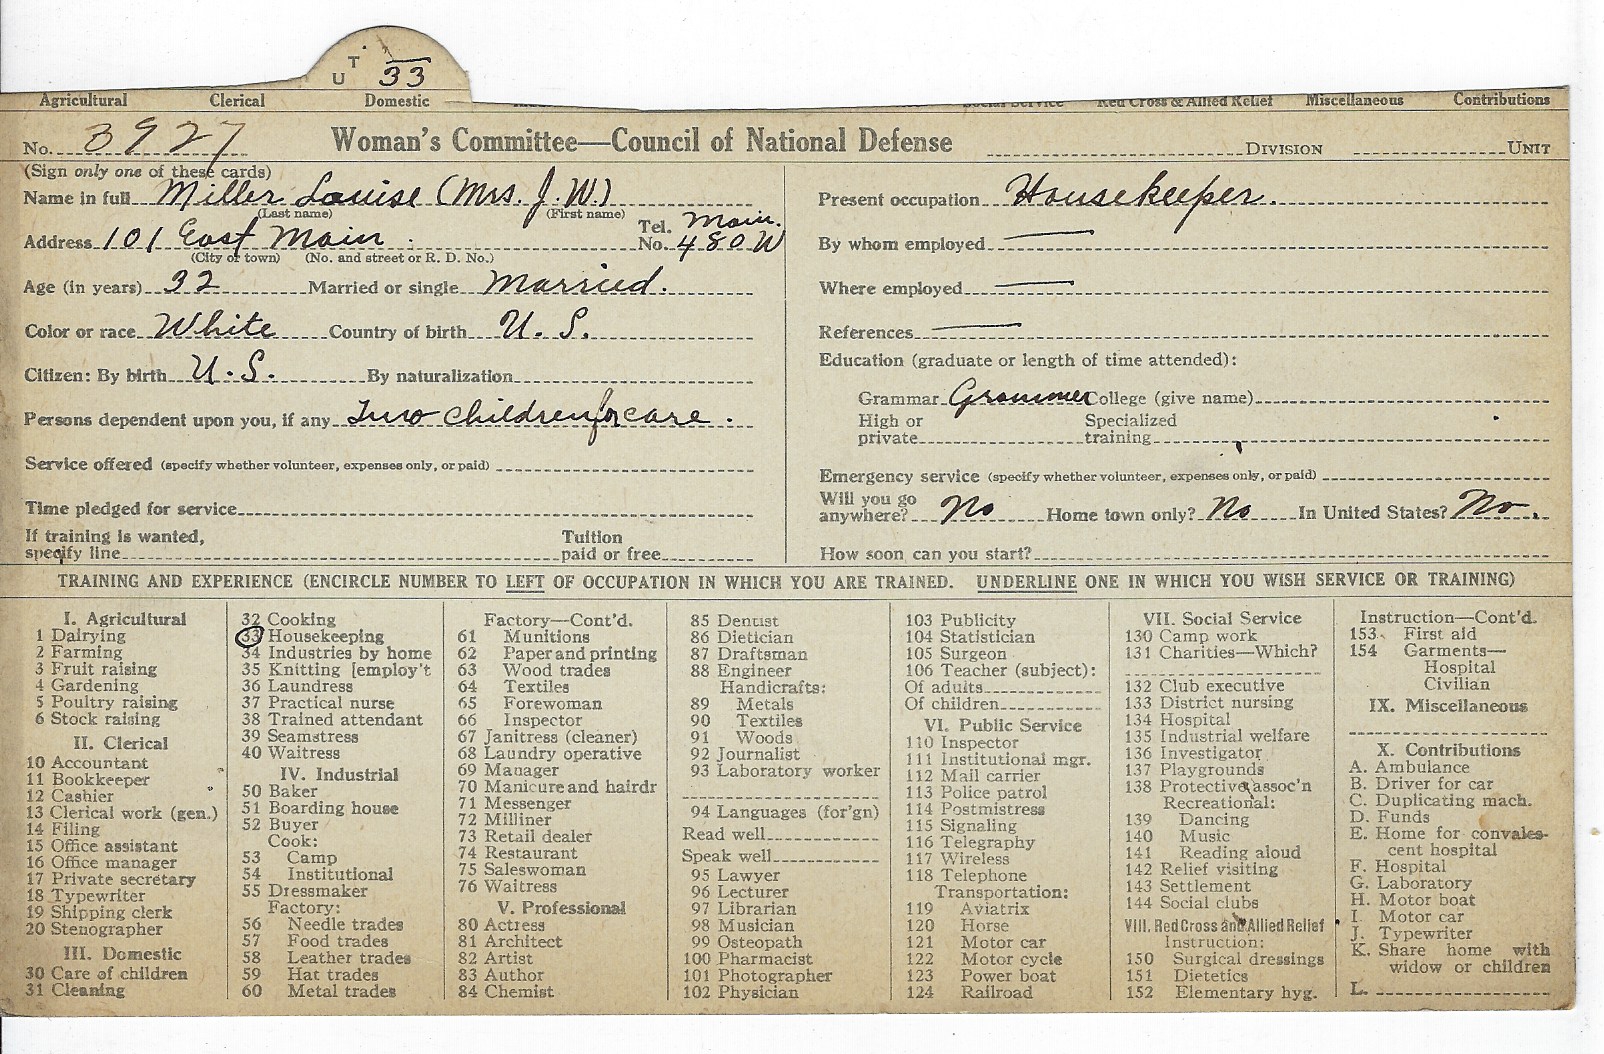 U T 33
Agricultural Clerical Domestic Social Service Red Cross & Allied Relief Miscellaneous Contributions
No. 3927 Woman's Committee—Council of National Defense DIVISION UNIT
(Sign only one of these cards)
Name in full Miller Louise (Mrs. J. W.)
(Last name) (First name)
Address 101 East Main. Tel. No. Main. 480 W
(City or town) (No. and street or R. D. No.)
Age (in years) 32 Married or single Married.
Color or race White Country of birth U. S.
Citizen: By birth U. S. By naturalization
Persons dependent upon you, if any Two children for care.
Service offered (specify whether volunteer, expenses only, or paid)
Time pledged for service
If training is wanted, Tuition
specify line paid or free
Present occupation Housekeeper.
By whom employed —
Where employed —
References —
Education (graduate or length of time attended):
Grammar Grammer College (give name)
High or Specialized
private training
Emergency service (specify whether volunteer, expenses only, or paid)
Will you go
anywhere? No Home town only? No In United States? No.
How soon can you start?
TRAINING AND EXPERIENCE (ENCIRCLE NUMBER TO LEFT OF OCCUPATION IN WHICH YOU ARE TRAINED. UNDERLINE ONE IN WHICH YOU WISH SERVICE OR TRAINING)
I. Agricultural
1 Dairying
2 Farming
3 Fruit raising
4 Gardening
5 Poultry raising
6 Stock raising
II. Clerical
10 Accountant
11 Bookkeeper
12 Cashier
13 Clerical work (gen.)
14 Filing
15 Office assistant
16 Office manager
17 Private secretary
18 Typewriter
19 Shipping clerk
20 Stenographer
III. Domestic
30 Care of children
31 Cleaning
32 Cooking
33 Housekeeping
34 Industries by home
35 Knitting [employ't
36 Laundress
37 Practical nurse
38 Trained attendant
39 Seamstress
40 Waitress
IV. Industrial
50 Baker
51 Boarding house
52 Buyer
Cook:
53 Camp
54 Institutional
55 Dressmaker
Factory:
56 Needle trades
57 Food trades
58 Leather trades
59 Hat trades
60 Metal trades
Factory—Cont'd.
61 Munitions
62 Paper and printing
63 Wood trades
64 Textiles
65 Forewoman
66 Inspector
67 Janitress (cleaner)
68 Laundry operative
69 Manager
70 Manicure and hairdr
71 Messenger
72 Milliner
73 Retail dealer
74 Restaurant
75 Saleswoman
76 Waitress
V. Professional
80 Actress
81 Architect
82 Artist
83 Author
84 Chemist
85 Dentist
86 Dietician
87 Draftsman
88 Engineer
Handicrafts:
89 Metals
90 Textiles
91 Woods
92 Journalist
93 Laboratory worker
94 Languages (for'gn)
Read well
Speak well
95 Lawyer
96 Lecturer
97 Librarian
98 Musician
99 Osteopath
100 Pharmacist
101 Photographer
102 Physician
103 Publicity
104 Statistician
105 Surgeon
106 Teacher (subject):
Of adults
Of children
VI. Public Service
110 Inspector
111 Institutional mgr.
112 Mail carrier
113 Police patrol
114 Postmistress
115 Signaling
116 Telegraphy
117 Wireless
118 Telephone
Transportation:
119 Aviatrix
120 Horse
121 Motor car
122 Motor cycle
123 Power boat
124 Railroad
VII. Social Service
130 Camp work
131 Charities—Which?
132 Club executive
133 District nursing
134 Hospital
135 Industrial welfare
136 Investigator
137 Playgrounds
138 Protective assoc'n
Recreational:
139 Dancing
140 Music
141 Reading aloud
142 Relief visiting
143 Settlement
144 Social clubs
VIII. Red Cross and Allied Relief
Instruction:
150 Surgical dressings
151 Dietetics
152 Elementary hyg.
Instruction—Cont'd.
153 First aid
154 Garments—
Hospital
Civilian
IX. Miscellaneous
X. Contributions
A. Ambulance
B. Driver for car
C. Duplicating mach.
D. Funds
E. Home for convales-
cent hospital
F. Hospital
G. Laboratory
H. Motor boat
I. Motor car
J. Typewriter
K. Share home with
widow or children
L.